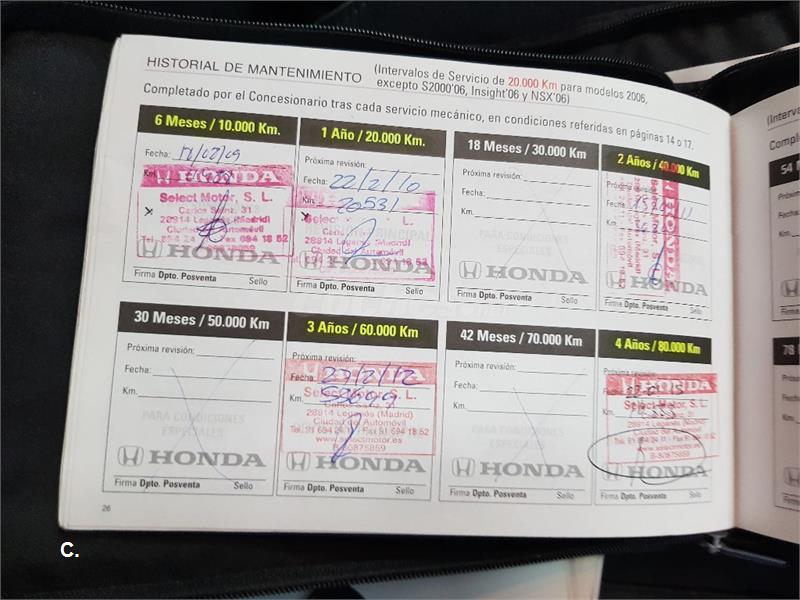 HISTORIAL DE MANTENIMIENTO
(Intervalos de Servicio de 20.000 Km para modelos 2006,
excepto S2000'06, Insight'06 y NSX'06)
Completado por el Concesionario tras cada servicio mecánico, en condiciones referidas en páginas 14 o 17.
6 Meses / 10.000 Km.
Fecha:
Km.
HONDA
Select Motor, S. L.
Carlos Sainz, 31
28914 Leganés (Madrid)
Ciudad del Automóvil
HONDA
Firma Dpto. Posventa Sello
1 Año / 20.000 Km.
Próxima revisión:
Fecha: 22/2/10
Km. 20531
28914 Leganés (Madrid)
Ciudad del Automóvil
HONDA
Firma Dpto. Posventa Sello
18 Meses / 30.000 Km
Próxima revisión:
Fecha:
Km.
PARA CONDICIONES
ESPECIALES
HONDA
Firma Dpto. Posventa Sello
2 Años / 40.000 Km
Próxima revisión:
Fecha:
Km.
HONDA
Select Motor, S. L.
HONDA
Firma Dpto. Posventa Sello
30 Meses / 50.000 Km
Próxima revisión:
Fecha:
Km.
PARA CONDICIONES
ESPECIALES
HONDA
Firma Dpto. Posventa Sello
3 Años / 60.000 Km
Próxima revisión:
Fecha: 27/2/12
Km. 53699
HONDA
28914 Leganés (Madrid)
Ciudad del Automóvil
Tel. 91 694 24 11 - Fax 91 694 18 52
www.selectmotor.es
B-80875859
HONDA
Firma Dpto. Posventa Sello
42 Meses / 70.000 Km
Próxima revisión:
Fecha:
Km.
PARA CONDICIONES
ESPECIALES
HONDA
Firma Dpto. Posventa Sello
4 Años / 80.000 Km
Próxima revisión:
Fecha:
Km.
HONDA
Select Motor, S. L.
28914 Leganés (Madrid)
Ciudad del Automóvil
www.selectmotor.es
B-80875859
HONDA
Firma Dpto. Posventa Sello
26
C.
(Interva
Comple
54 M
Próxima
Fecha:
Km.
Firma
78